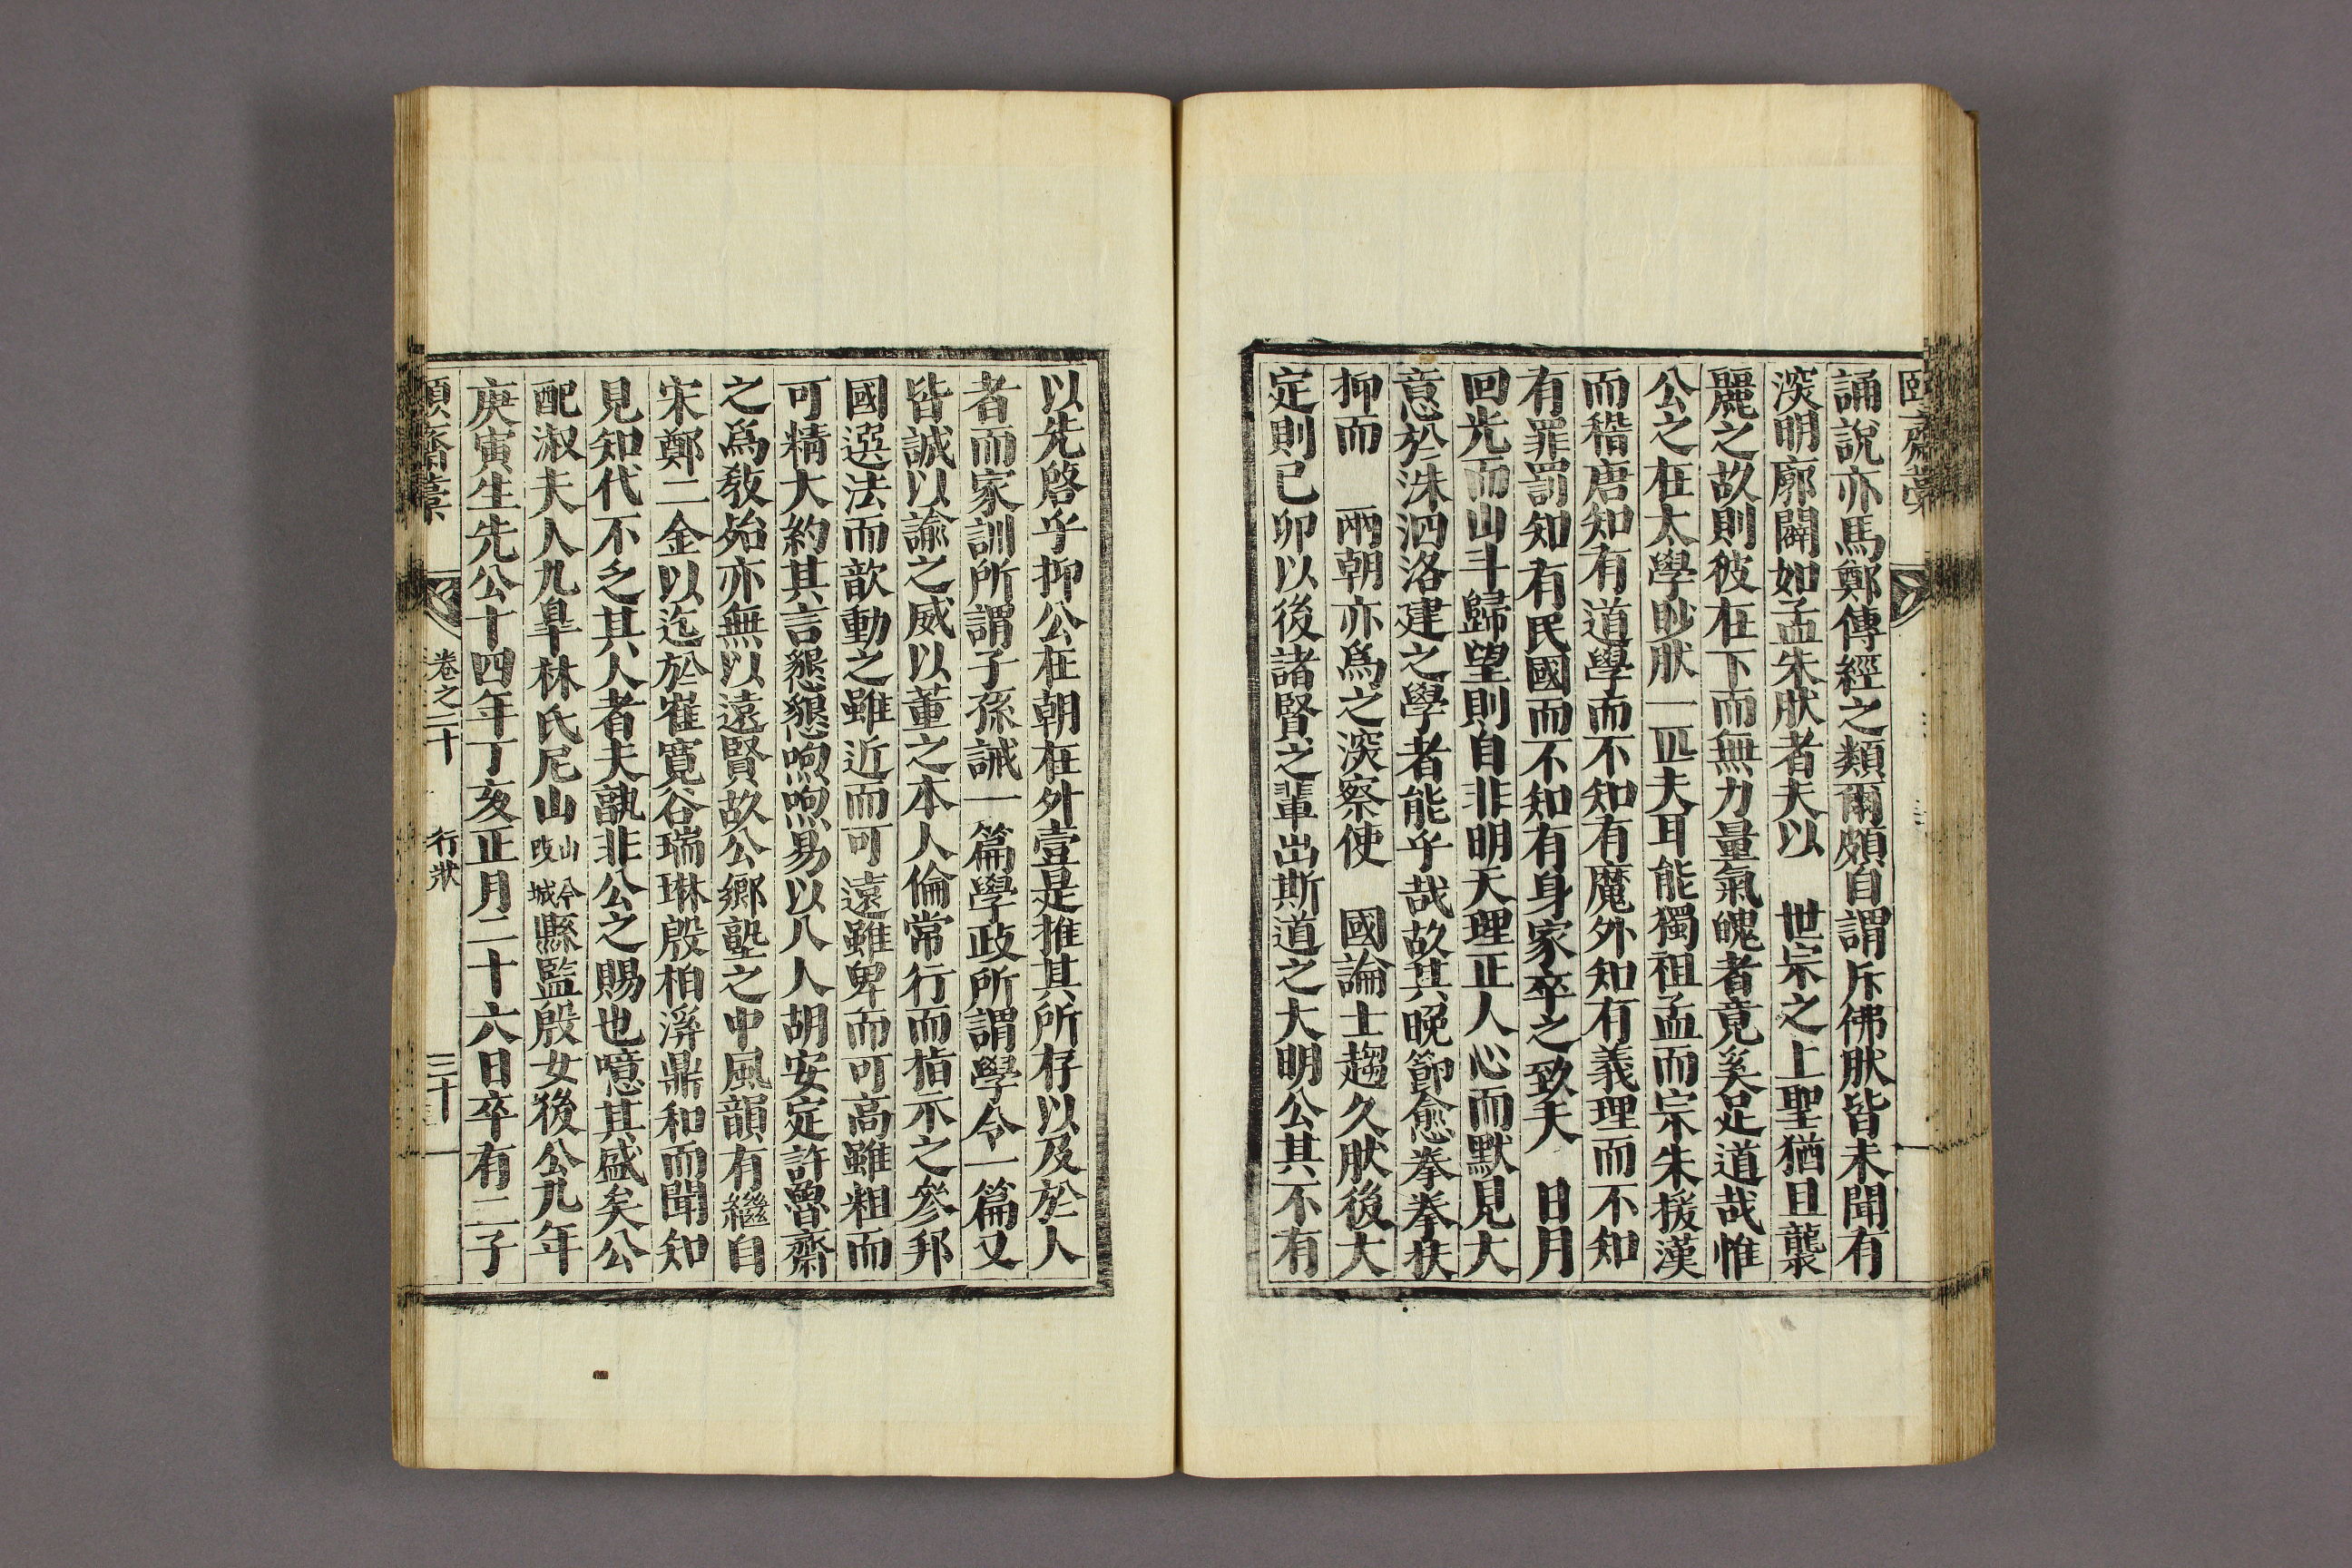 頤齋藁
誦說亦馬鄭傳經之類爾頗自謂斥佛肰皆未聞有
深明廓闢如孟朱肰者夫以　世宗之上聖猶且襲
麗之故則彼在下而無力量氣魄者竟奚足道哉惟
公之在太學眇肰一匹夫耳能獨祖孟而宗朱援漢
而稽唐知有道學而不知有魔外知有義理而不知
有罪罰知有民國而不知有身家卒之致天　日月
回光而山斗歸望則自非明天理正人心而默見大
意於洙泗洛建之學者能乎哉故其晚節愈拳拳扶
抑而　兩朝亦爲之深察使　國論士趨久肰後大
定則己卯以後諸賢之輩出斯道之大明公其不有
以先啓乎抑公在朝在外壹是推其所存以及於人
者而家訓所謂子孫誡一篇學政所謂學令一篇又
皆誠以諭之威以董之本人倫常行而指示之參邦
國選法而歆動之雖近而可遠雖卑而可高雖粗而
可精大約其言懇懇喣喣易以入人胡安定許魯齋
之爲敎殆亦無以遠賢故公鄕塾之中風韻有繼自
宋鄭二金以迄於崔寬谷瑞琳殷柏溪鼎和而聞知
見知代不乏其人者夫孰非公之賜也噫其盛矣公
配淑夫人九臯林氏尼山山今改城縣監殷女後公九年
庚寅生先公十四年丁亥正月二十六日卒有二子
頤齋藁　卷之二十　行狀　三十